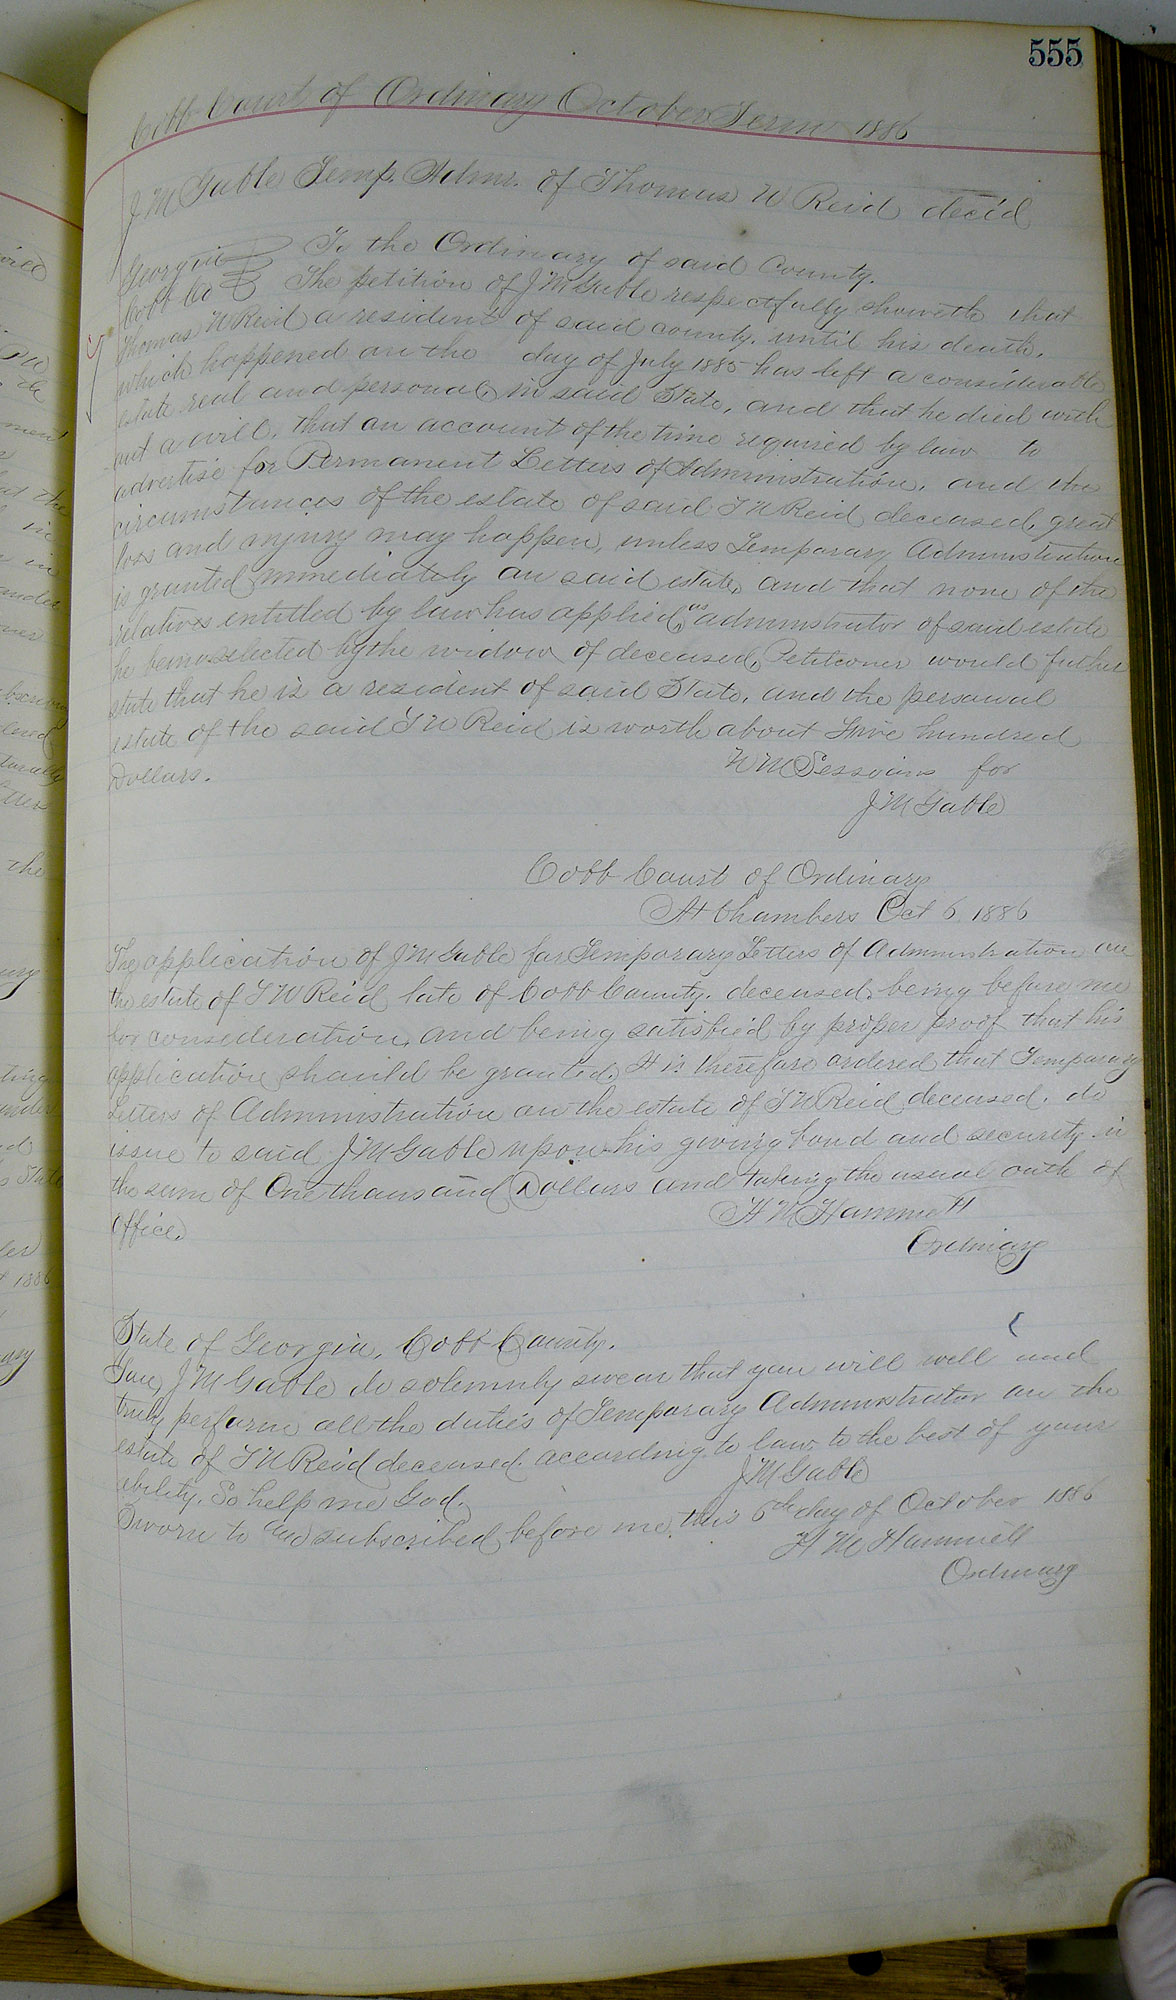 555
Cobb Court of Ordinary October Term 1886
J M Gable Temp. Admr. of Thomas W Reid decd
Georgia To the Ordinary of said County.
Cobb Co The petition of J M Gable respectfully showeth that
Thomas W Reid a resident of said county, until his death,
which happened on the day of July 1885 has left a considerable
estate real and personal, in said State, and that he died with
out a will, that on account of the time required by law to
advertise for Permanent Letters of Administration, and the
circumstances of the estate of said T W Reid, deceased, great
loss and injury may happen, unless Temporary Administration
is granted immediately on said estate, and that none of the
relatives entitled by law has applied, as administrator of said estate
he being selected by the widow of deceased, Petitioner would futher
state that he is a resident of said State, and the personal
estate of the said T W Reid is worth about five hundred
Dollars.
W M Sessoins for
J M Gable
Cobb Court of Ordinary
At Chambers Oct 6 1886
The application of J M Gable for Temporary Letters of Administration on
the estate of T W Reid late of Cobb County, deceased, being before me
for consideration, and being satisfied by proper proof that his
application should be granted, It is therefore ordered that Temporary
Letters of Administration on the estate of T W Reid deceased, do
issue to said J M Gable upon his giving bond and security in
the sum of One thousand Dollars and taking the usual oath of
office.
H M Hammett
Ordinary
State of Georgia, Cobb County.
You, J M Gable do solemnly swear that you will well and
truly perform all the duties of Temporary Administrator on the
estate of T W Reid deceased according to law to the best of your
ability. So help me God.
J M Gable
Sworn to and subscribed before me, this 6th day of October 1886
H M Hammett
Ordinary